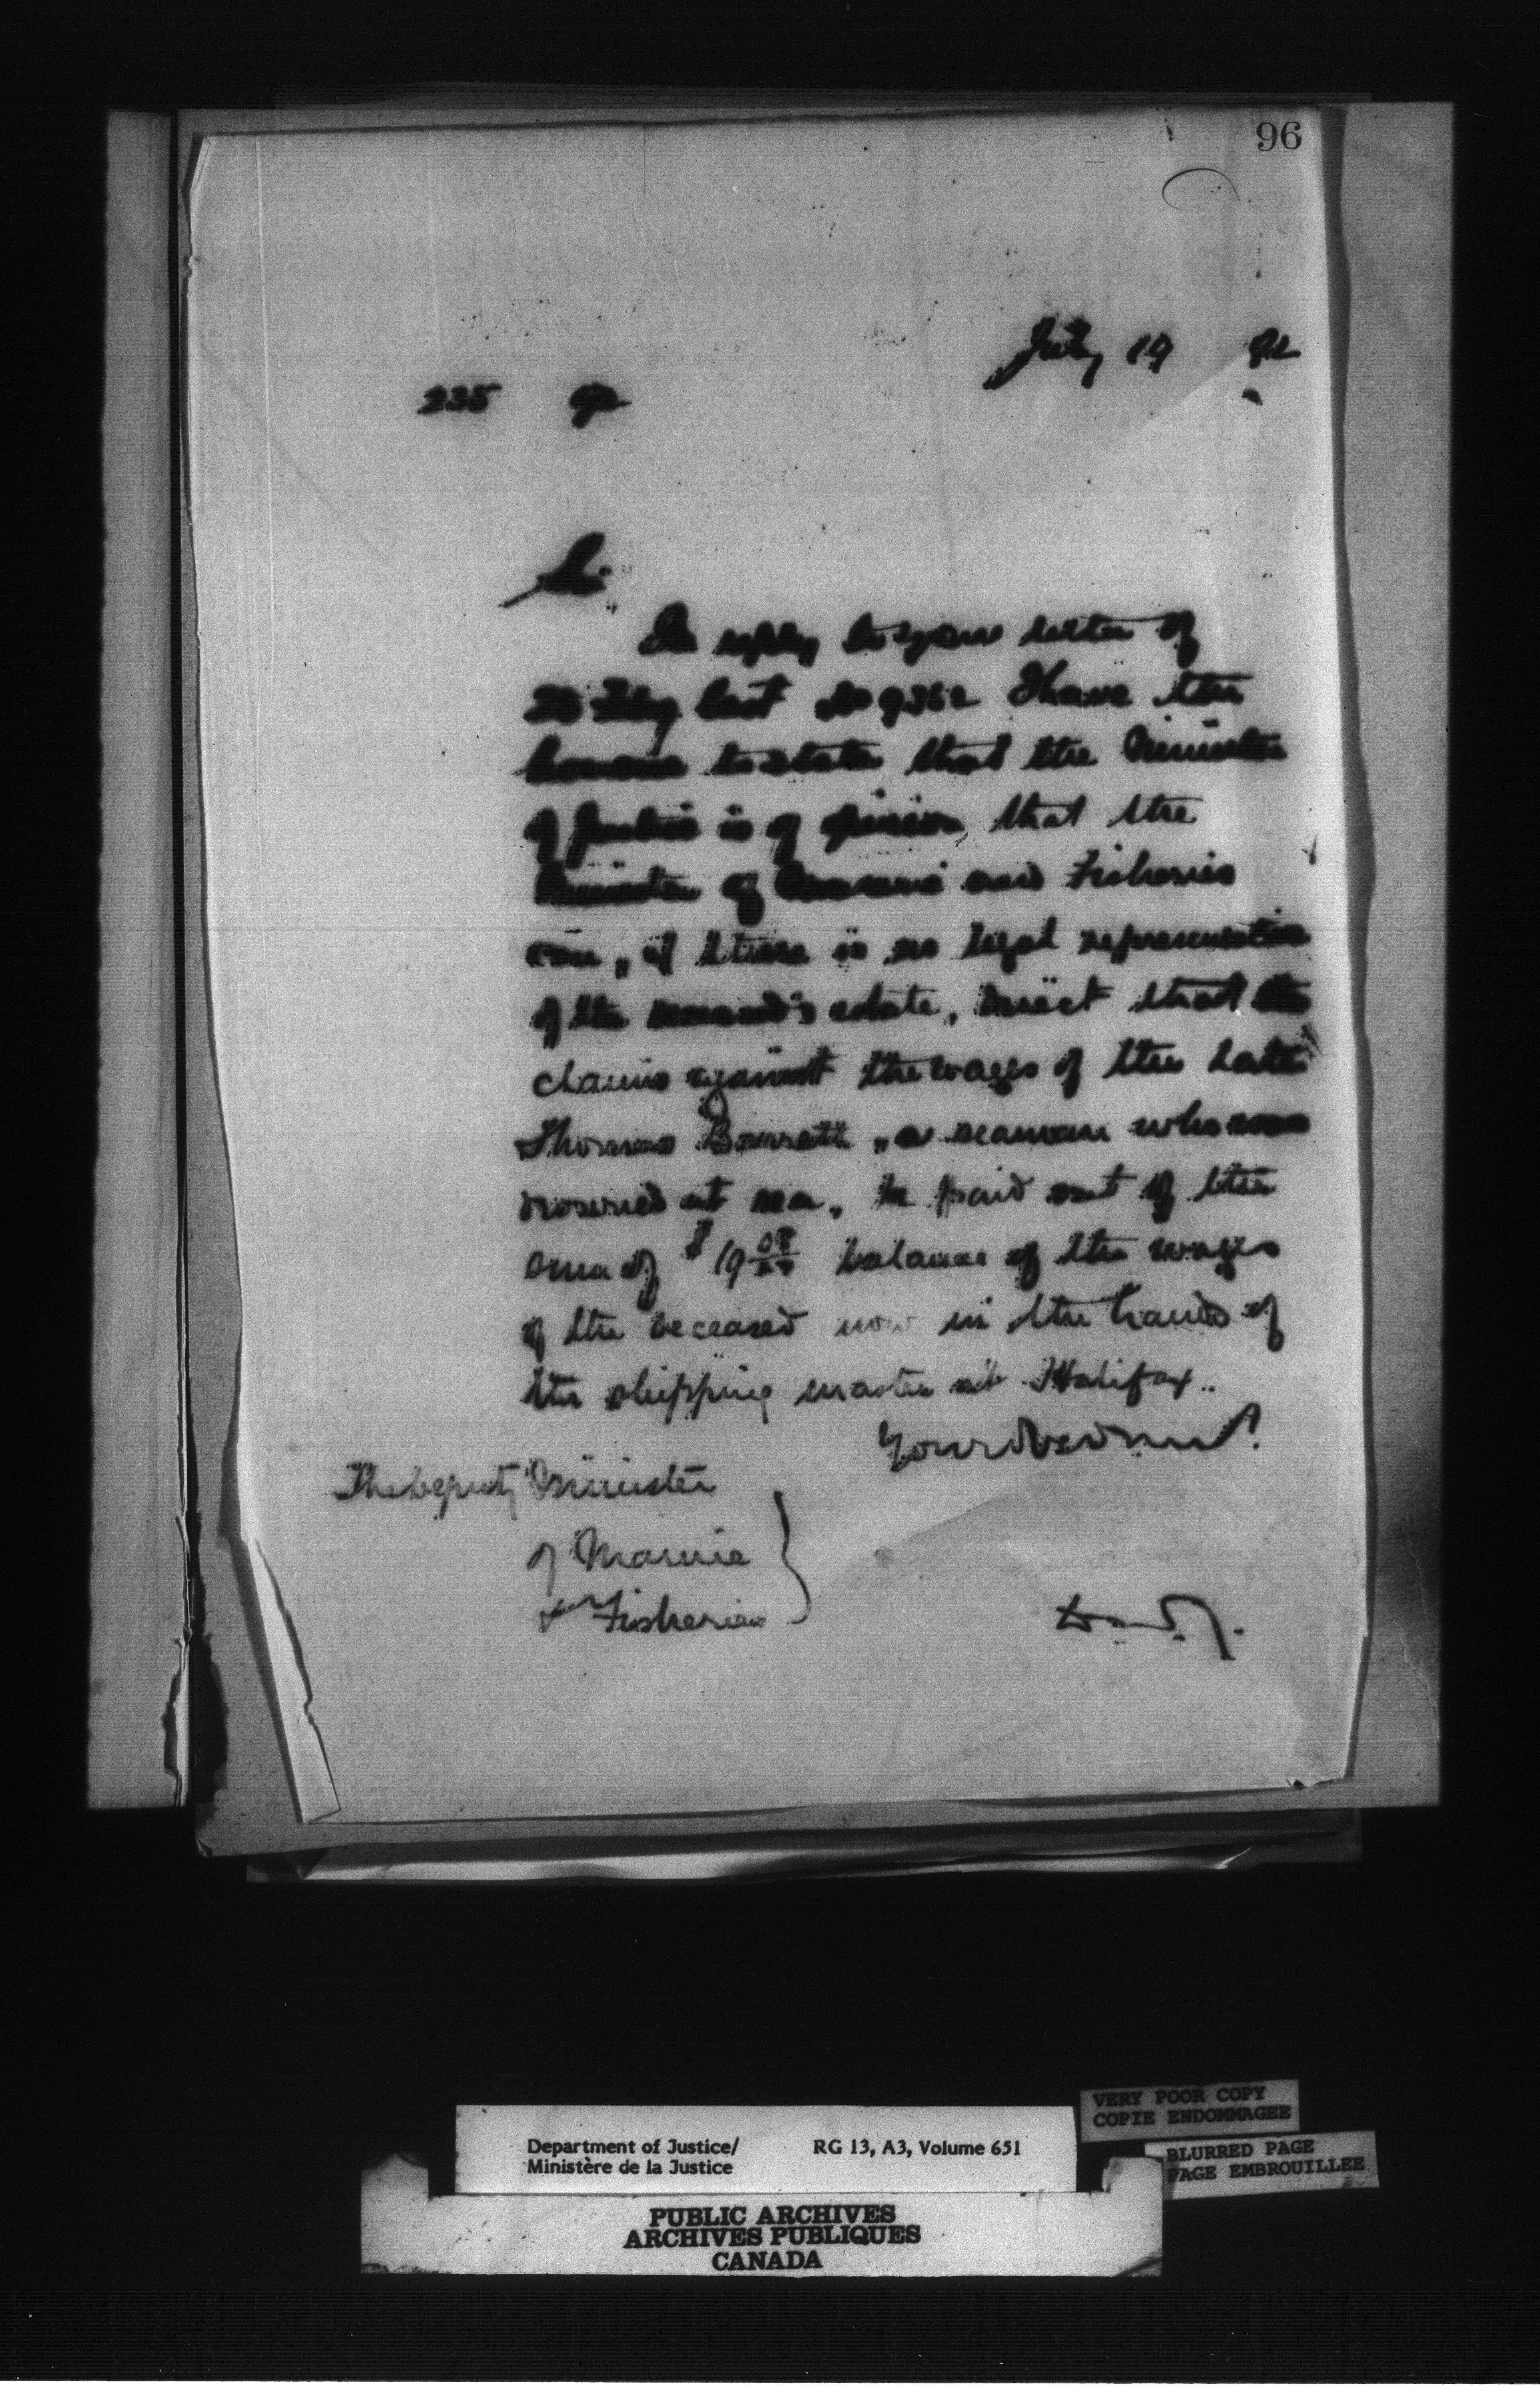 96
July 19 92
235 92
Sir,
In reply to your letter of
Feby last No 9362 I have the
honour to state that the Minister
of Justice is of opinion, that the
Minister of Marine and Fisheries
can, if there is no legal representative
of the estate, direct that the
claims against the wages of the late
Thomas Barrett, a seaman who was
drowned at sea, be paid out of the
sum of $19 balance of the wages
of the deceased now in the hands of
the shipping master at Halifax.
The Deputy Minister
of Marine
& Fisheries
D.M.J.
VERY POOR COPY
COPIE ENDOMMAGEE
BLURRED PAGE
PAGE EMBROUILLEE
Department of Justice/ RG 13, A3, Volume 651
Ministère de la Justice
PUBLIC ARCHIVES
ARCHIVES PUBLIQUES
CANADA